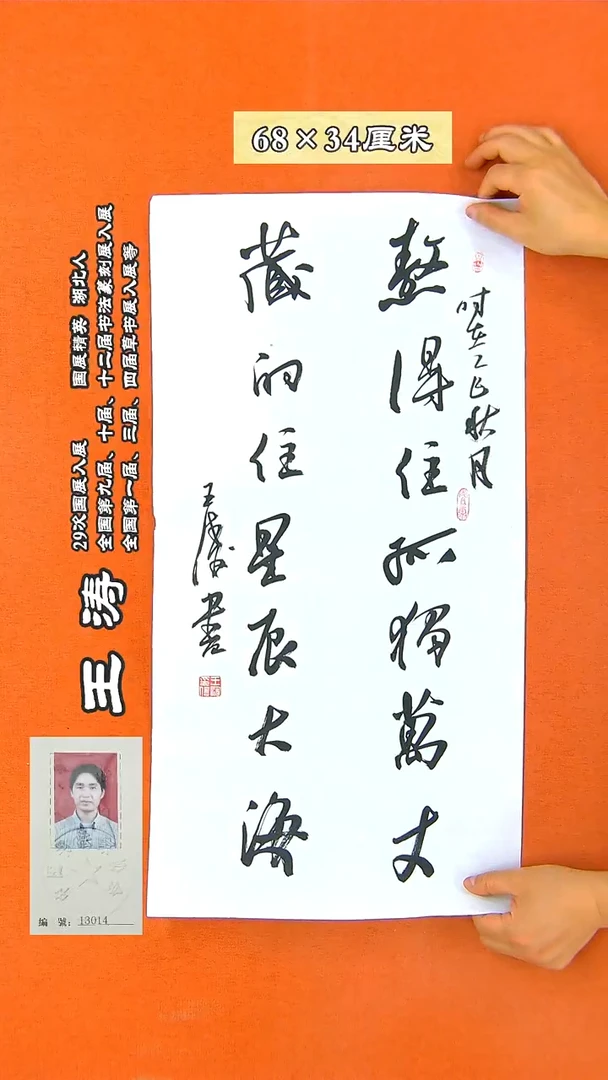 68×34厘米
时在乙巳秋月
熬得住孤獨萬丈
藏的住星辰大海
王涛書
王涛
29次国展入展 国展精英 湖北人
全国第九届、十届、十二届书法篆刻展入展
全国第一届、三届、四届草书展入展等
編 號：13014